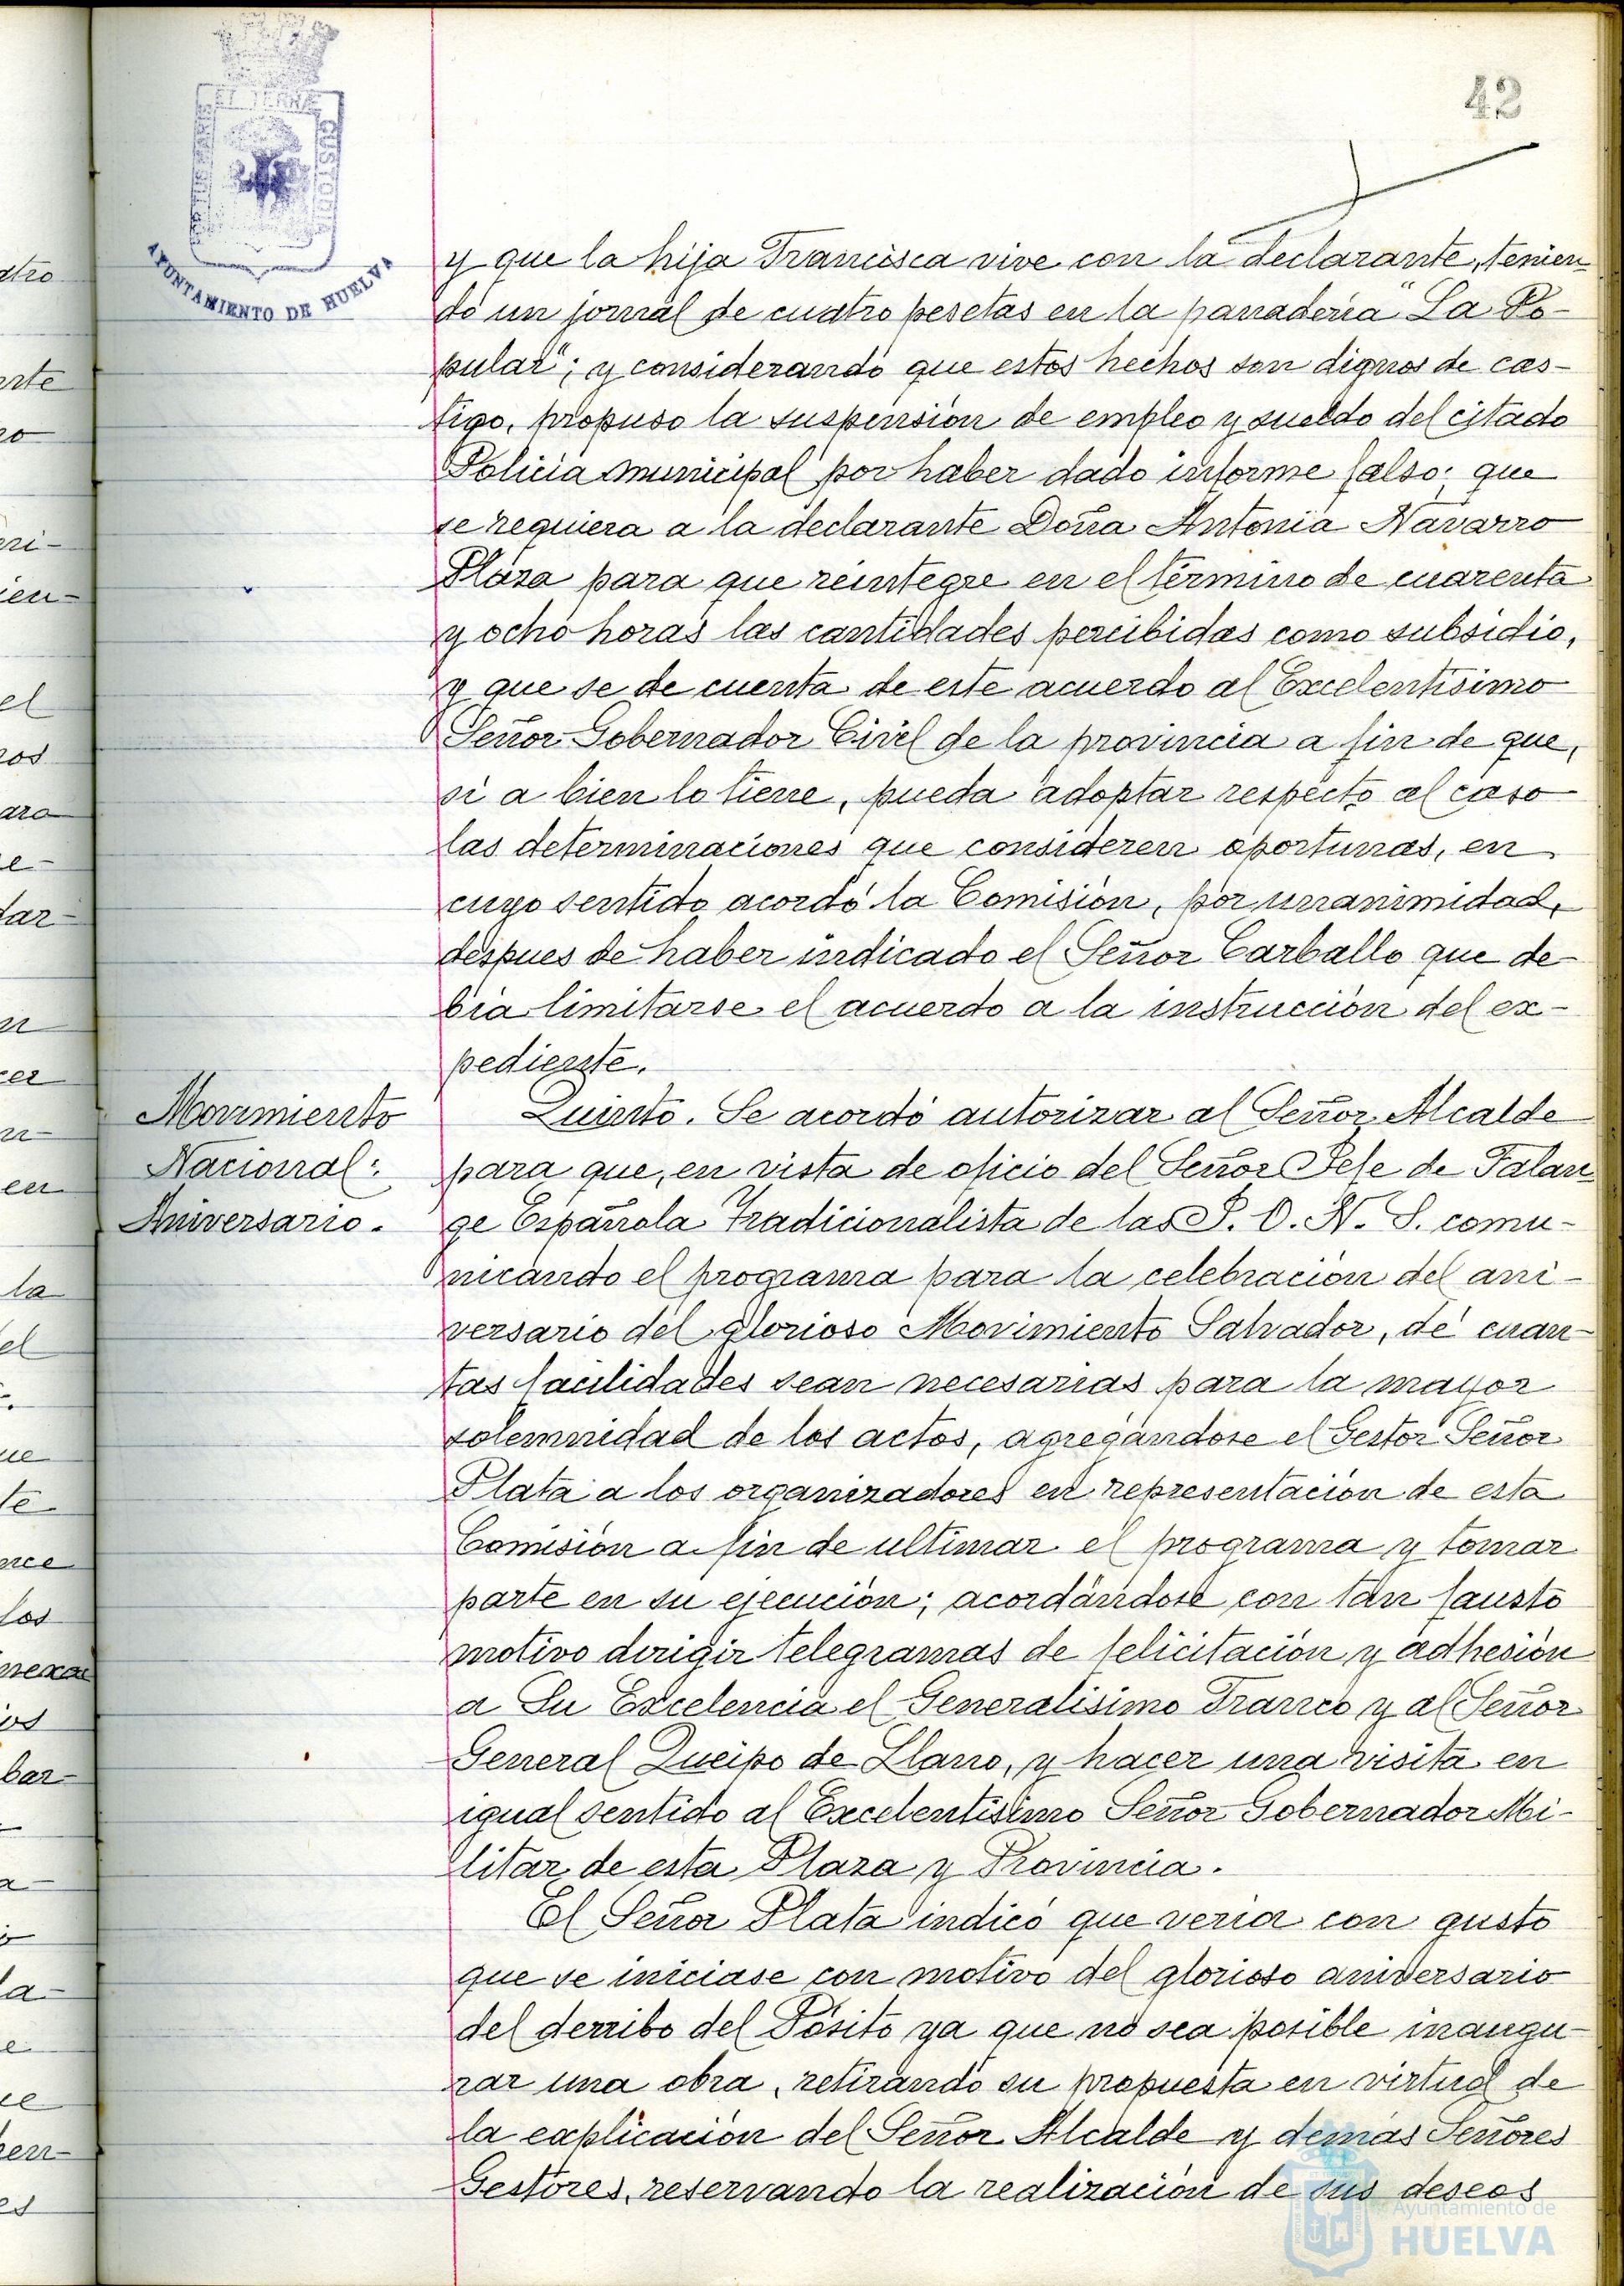 42
AYUNTAMIENTO DE HUELVA
y que la hija Francisca vive con la declarante, tenien-
do un jornal de cuatro pesetas en la panaderia "La Po-
pular"; y considerando que estos hechos son dignos de cas-
tigo, propuso la suspensión de empleo y sueldo del citado
Policia municipal por haber dado informe falso; que
se requiera a la declarante Doña Antonia Navarro
Plaza para que reintegre en el término de cuarenta
y ocho horas las cantidades percibidas como subsidio,
y que se de cuenta de este acuerdo al Excelentisimo
Señor Gobernador Civil de la provincia a fin de que,
si a bien lo tiene, pueda adoptar respecto al caso
las determinaciones que consideren oportunas, en
cuyo sentido acordó la Comisión, por unanimidad,
despues de haber indicado el Señor Carballo que de
bia limitarse el acuerdo a la instrucción del ex-
pediente.
Movimiento
Nacional:
Aniversario.
Quinto. Se acordó autorizar al Señor Alcalde
para que, en vista de oficio del Señor Jefe de Falan
ge Española Tradicionalista de las J. O. N. S. comu-
nicando el programa para la celebración del ani-
versario del glorioso Movimiento Salvador, dé cuan-
tas facilidades sean necesarias para la mayor
solemnidad de los actos, agregándose el Gestor Señor
Plata a los organizadores en representación de esta
Comisión a fin de ultimar el programa y tomar
parte en su ejecución; acordándose con tan fausto
motivo dirigir telegramas de felicitación y adhesión
a Su Excelencia el Generalisimo Franco y al Señor
General Queipo de Llano, y hacer una visita en
igual sentido al Excelentisimo Señor Gobernador Mi-
litar de esta Plaza y Provincia.
El Señor Plata indicó que veria con gusto
que se iniciase con motivo del glorioso aniversario
del derribo del Pósito ya que no sea posible inaugu-
rar una obra, retirando su propuesta en virtud de
la explicación del Señor Alcalde y demás Señores
Gestores, reservando la realización de sus deseos
Ayuntamiento de
HUELVA